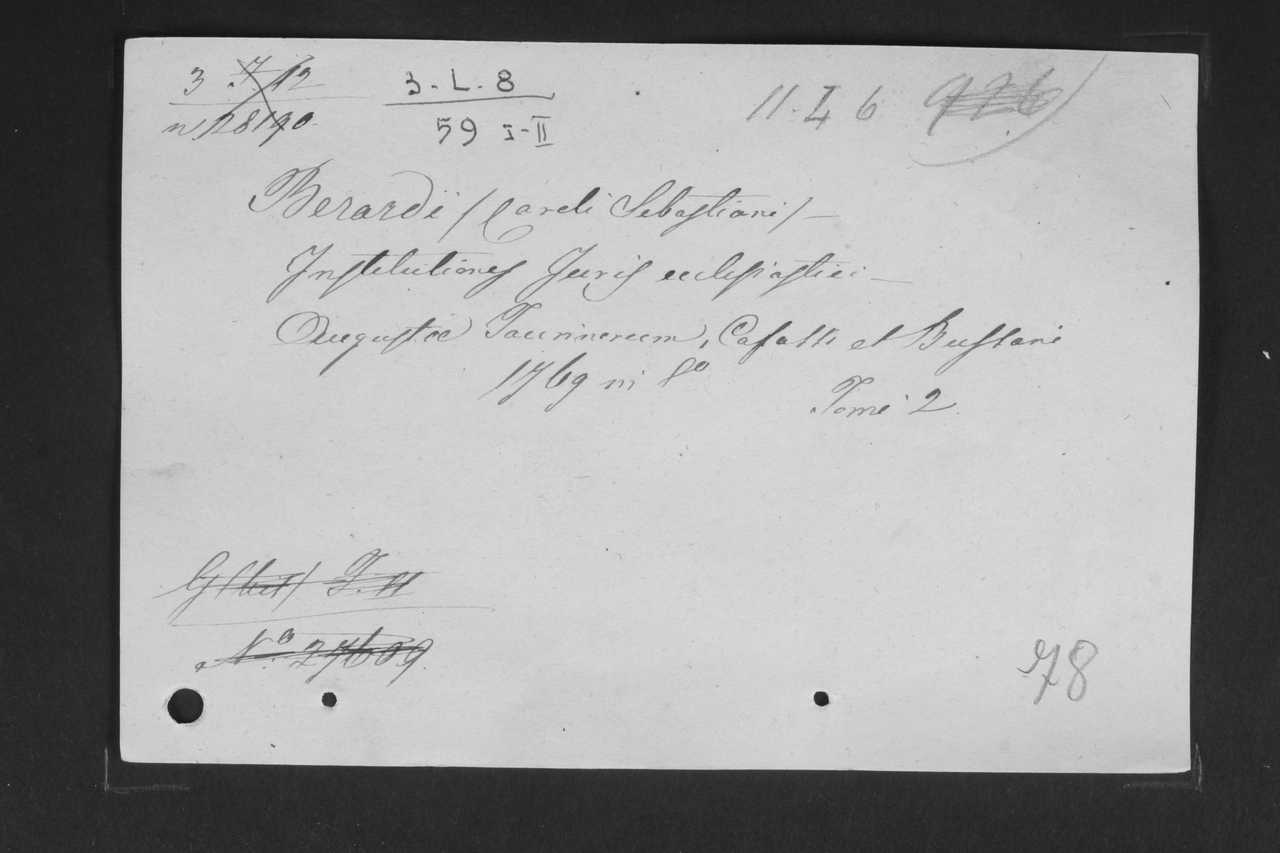 3 7/12
n 28190
3. L. 8
59 I-II
11. I 6 926
Berardi /Caroli Sebastiani/ —
Institutiones Juris ecclesiastici —
Augustæ Taurinorum, Casatti et Bussani
1769 in 8º
Tomi 2.
T. 11
Nº 27609.
78